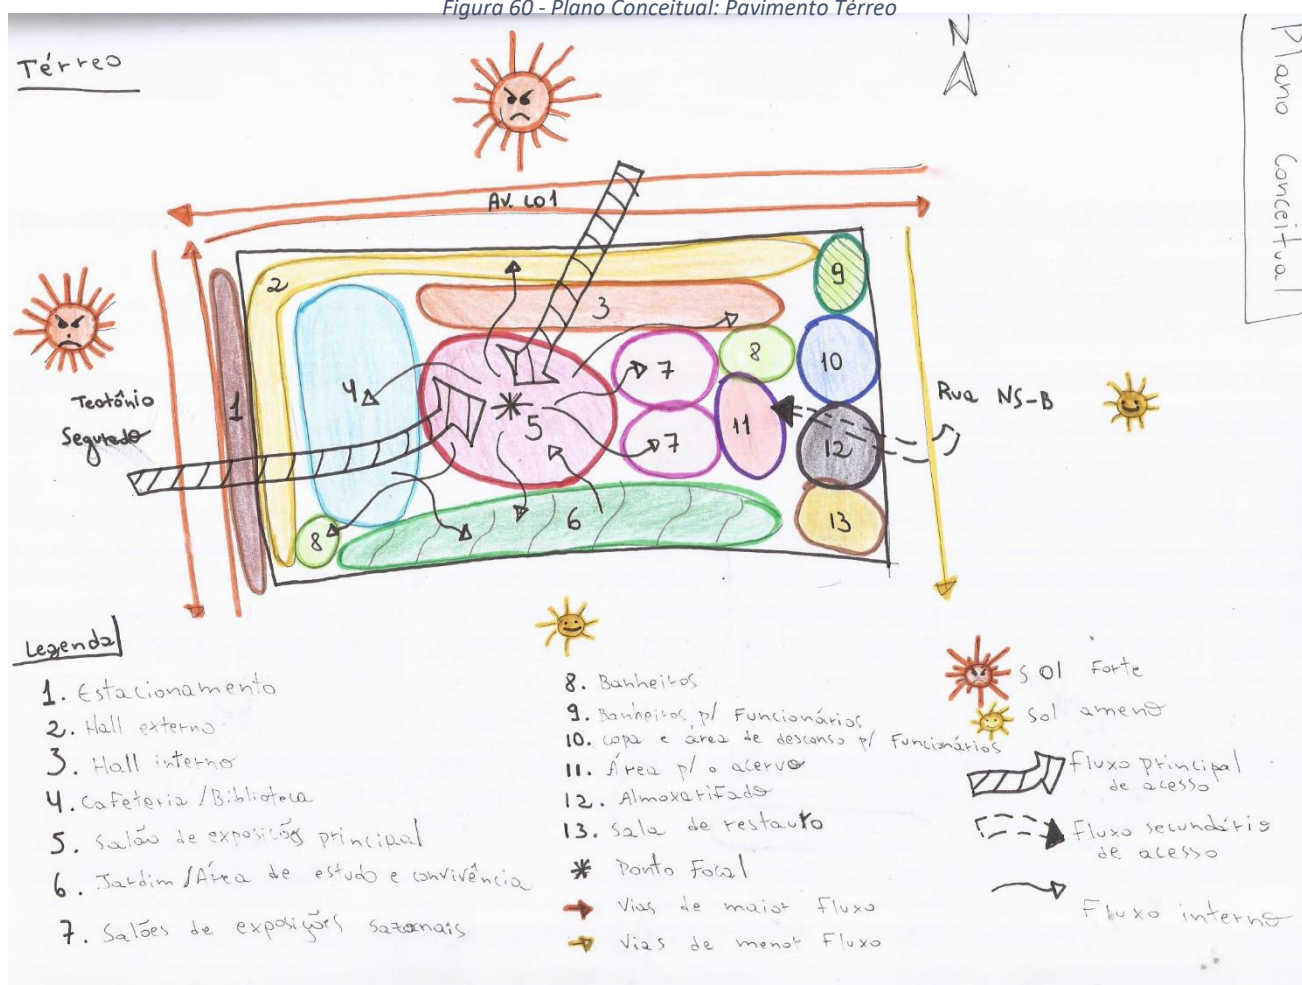 Figura 60 - Plano Conceitual: Pavimento Térreo
Térreo
N
Plano Conceitual
Av. LO1
Teotônio
Segurado
Rua NS-B
1
2
3
4
5
6
7
7
8
8
9
10
11
12
13
Legenda
1. Estacionamento
2. Hall externo
3. Hall interno
4. Cafeteria/Biblioteca
5. Salão de exposições principal
6. Jardim/Área de estudo e convivência
7. Salões de exposições sazonais
8. Banheiros
9. Banheiros p/ Funcionários
10. copa e área de descanso p/ Funcionários
11. Área p/ o acervo
12. Almoxarifado
13. Sala de restauro
Ponto Focal
Vias de maior Fluxo
Vias de menor Fluxo
Sol Forte
Sol ameno
Fluxo principal
de acesso
Fluxo secundário
de acesso
Fluxo interno